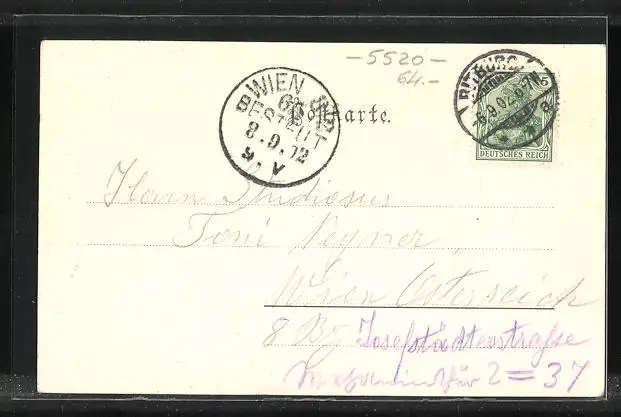 -5520-
64.-
WIEN
BESTELLT
8.9.02
9.V
Postkarte.
BITBURG
6.9.02
DEUTSCHES REICH
Herrn Studiosus
Toni
Wien Österreich
8 Bz Josefstädterstraße
2=37